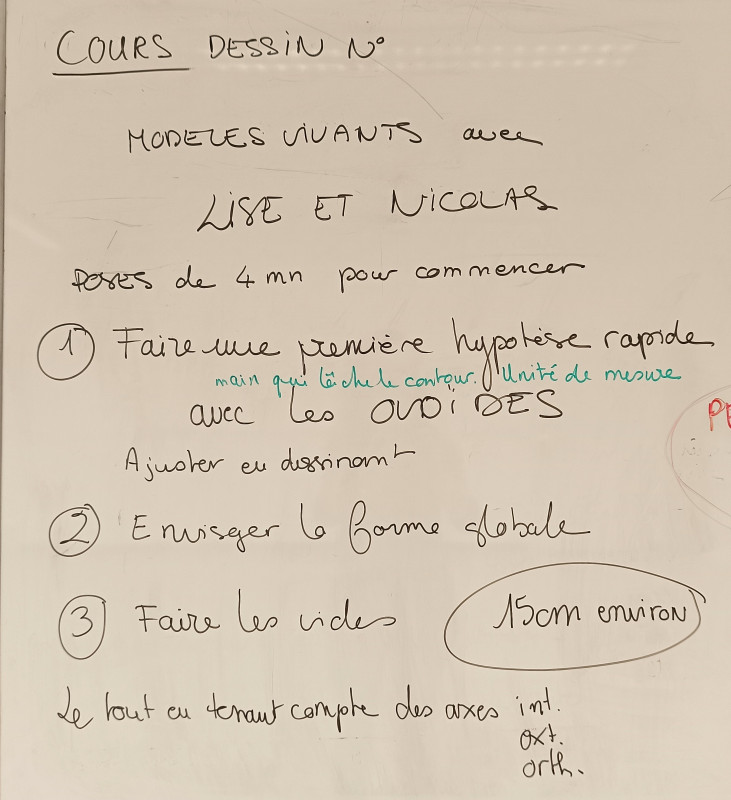 COURS DESSIN N°
MODELES VIVANTS avec
LISE ET NICOLAS
POSES de 4 mn pour commencer
1 Faire une première hypotèse rapide
main qui lâche le contour. Unité de mesure
avec les OVOÏDES
Ajuster en dessinant
2 Envisger la forme globale
3 Faire les vides
15cm environ
Le tout en tenant compte des axes int.
ext.
orth.